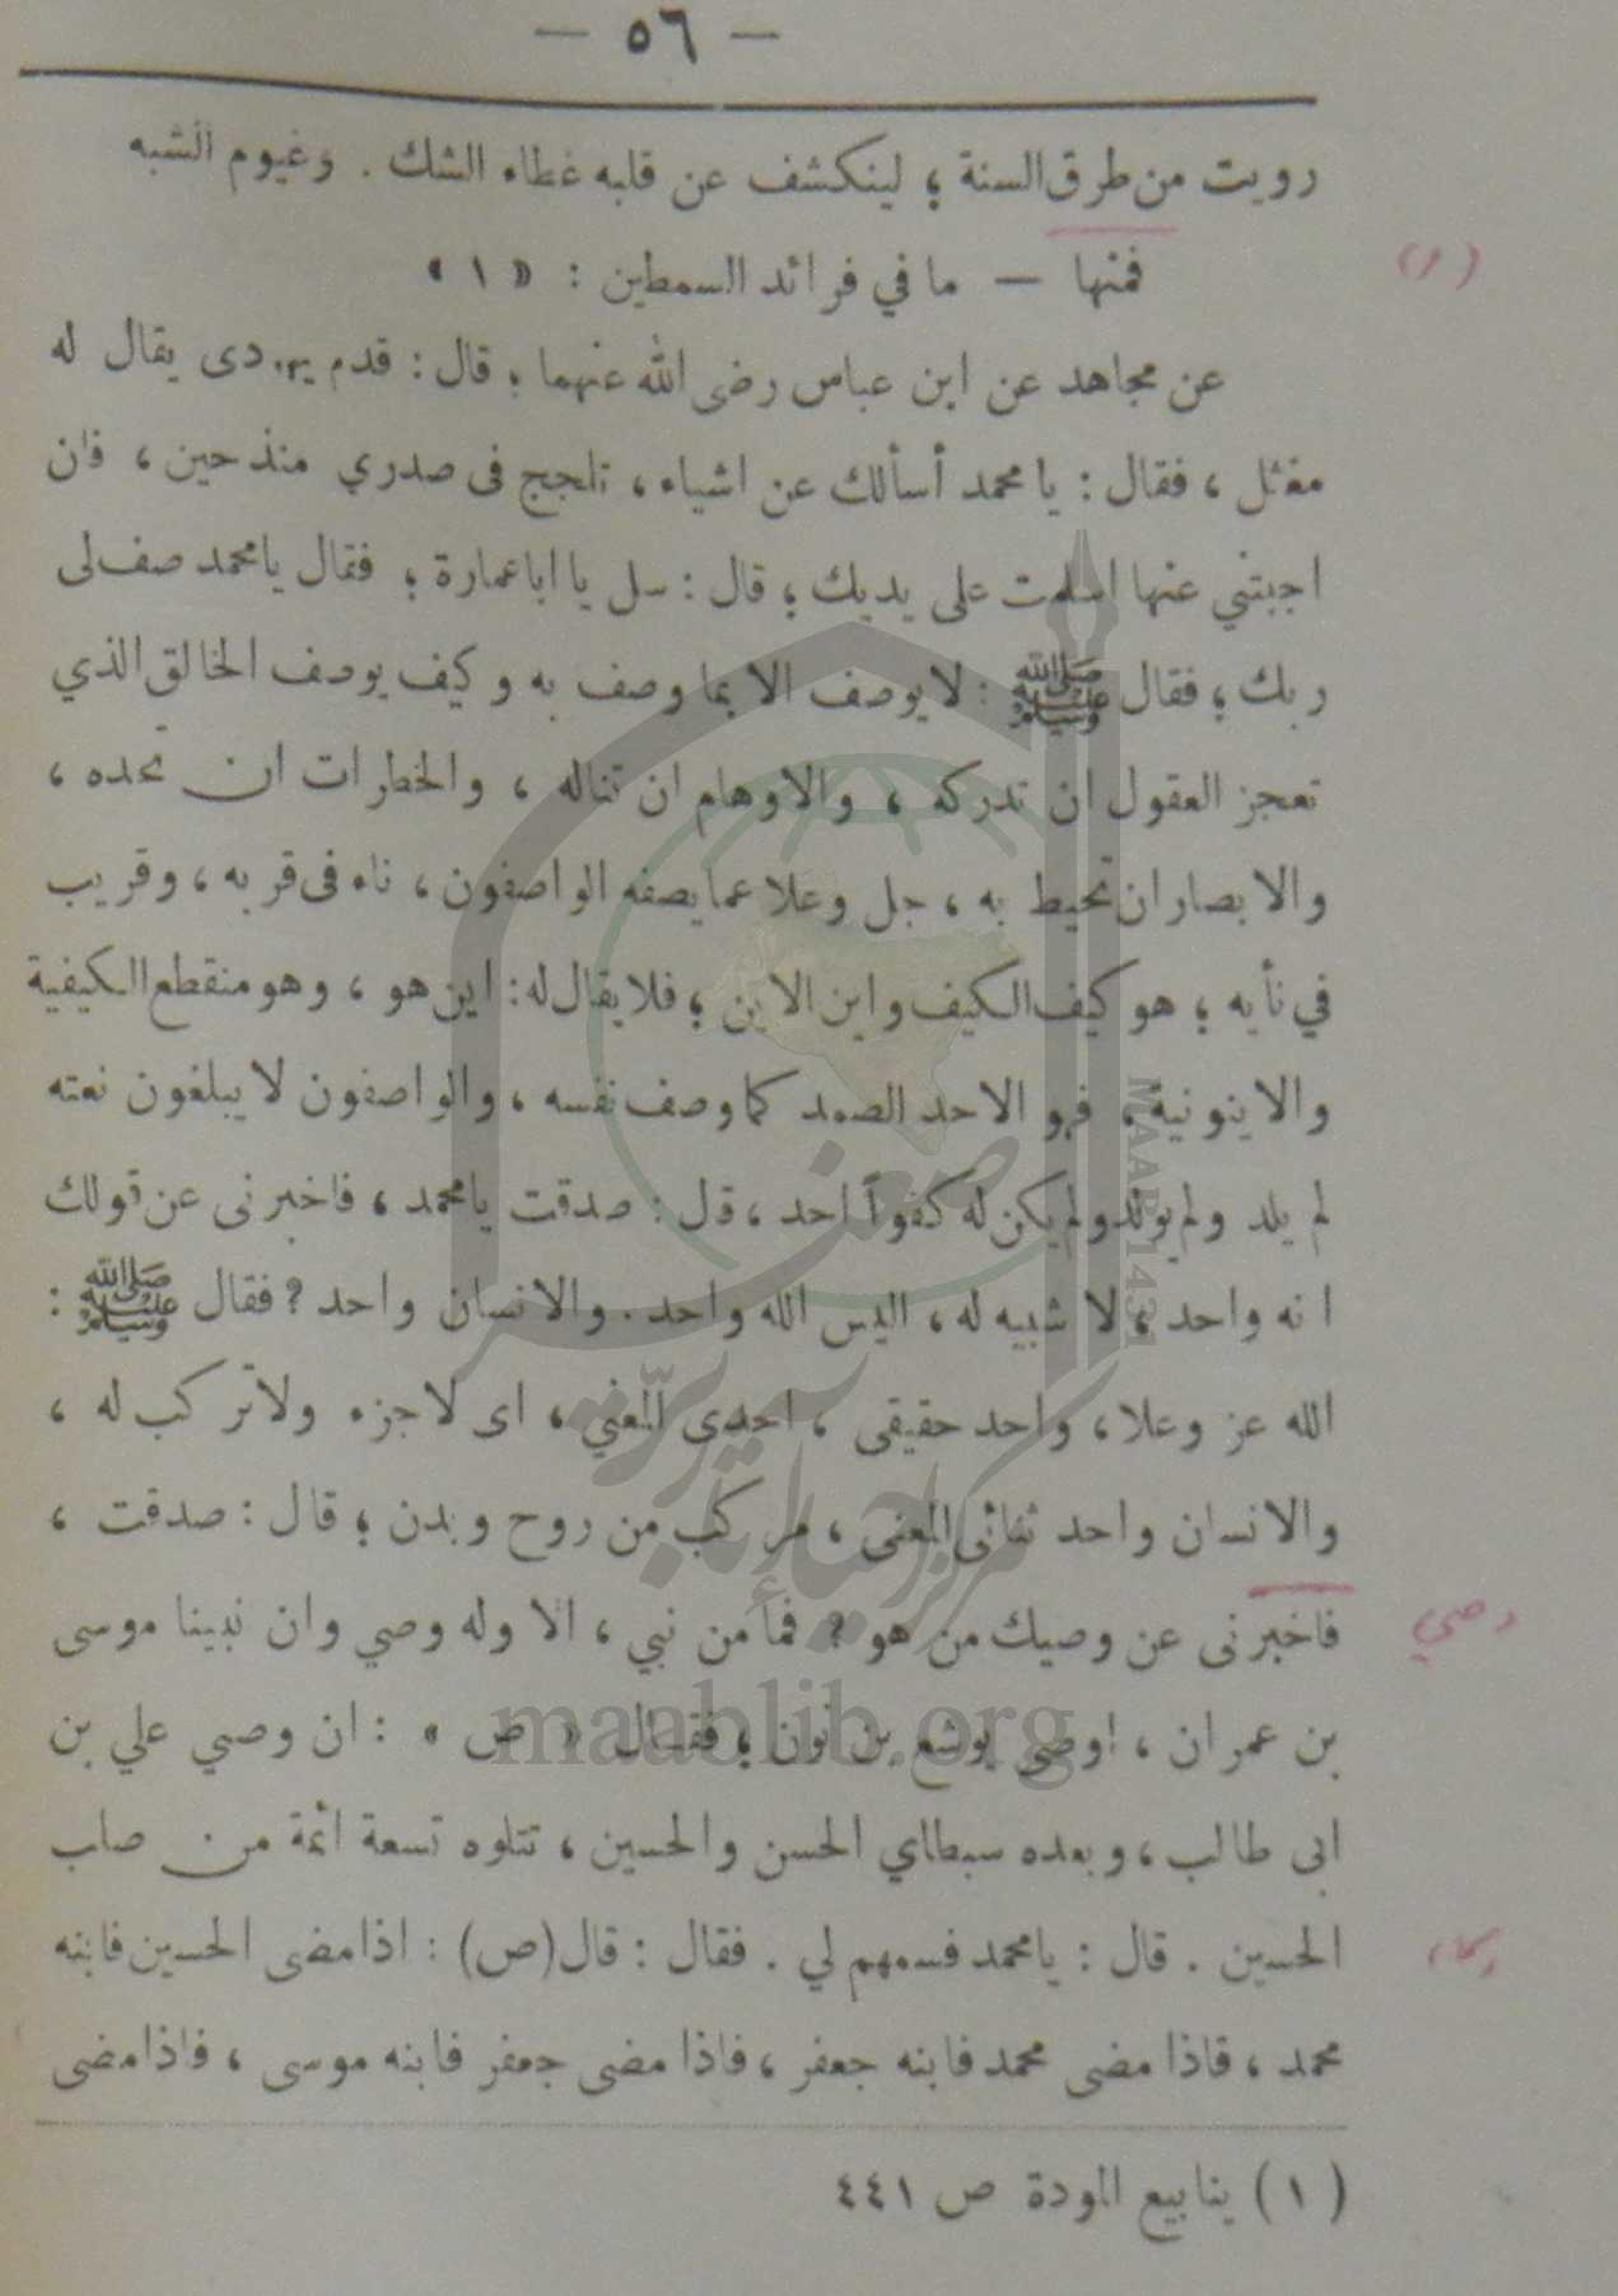 — ٥٦ —
رويت من طرق السنة ؛ لينكشف عن قلبه غطاء الشك . وغيوم الشبه
(١)
فمنها — ما في فرائد السمطين : « ١ »
عن مجاهد عن ابن عباس رضى الله عنهما ؛ قال : قدم يهودى يقال له
مغثل ، فقال : يا محمد أسألك عن اشياء ، تلجج فى صدري منذ حين ، فان
اجبتني عنها اسلمت على يديك ؛ قال : سل يا ابا عمارة ؛ فقال يا محمد صف لى
ربك ؛ فقال ﷺ : لا يوصف الا بما وصف به و كيف يوصف الخالق الذي
تعجز العقول ان تدركه ، والاوهام ان تناله ، والخطرات ان تحده ،
والابصار ان تحيط به ، جل وعلا عما يصفه الواصفون ، ناء فى قربه ، وقريب
في نأيه ؛ هو كيف الكيف واين الاين ؛ فلا يقال له : اين هو ، وهو منقطع الكيفية
والاينونية ، فهو الاحد الصمد كما وصف نفسه ، والواصفون لا يبلغون نعته
لم يلد ولم يولد ولم يكن له كفواً احد ، قل : صدقت يا محمد ، فاخبرنى عن قولك
انه واحد ، لا شبيه له ، اليس الله واحد . والانسان واحد ? فقال ﷺ :
الله عز وعلا ، واحد حقيقى ، احدى المعنى ، اى لا جزء ولا تركب له ،
والانسان واحد ثنائى المعنى ، مركب من روح وبدن ؛ قال : صدقت ،
فاخبرنى عن وصيك من هو ? فما من نبي ، الا وله وصي وان نبينا موسى
وصي
بن عمران ، اوصى يوشع بن نون ؛ فقال « ص » : ان وصي علي بن
ابى طالب ، وبعده سبطاي الحسن والحسين ، تتلوه تسعة أئمة من صلب
الحسين . قال : يا محمد فسمهم لي . فقال : قال (ص) : اذا مضى الحسين فابنه
محمد ، فاذا مضى محمد فابنه جعفر ، فاذا مضى جعفر فابنه موسى ، فاذا مضى
( ١ ) ينابيع المودة ص ٤٤١
MAAB 1431
maablib.org